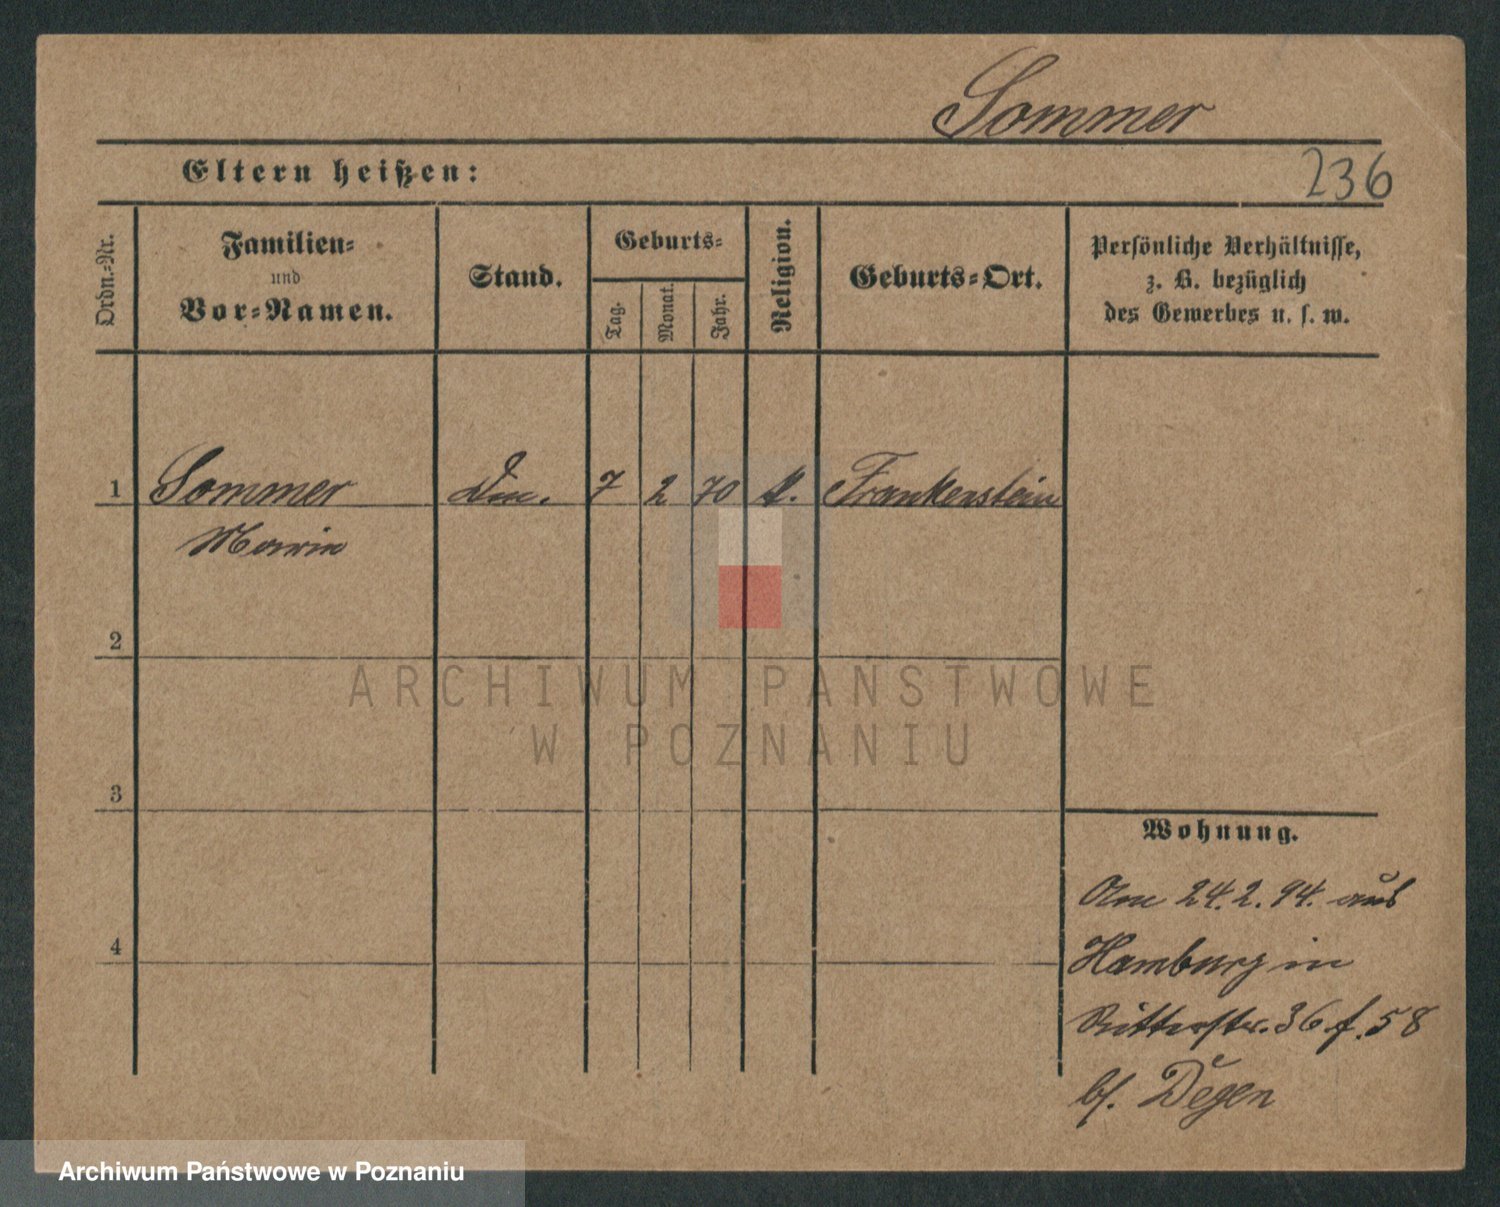 Sommer
Eltern heißen:
236
Ordn.-Nr.
Familien-
und
Vor-Namen.
Stand.
Geburts-
Tag.
Monat.
Jahr.
Religion.
Geburts-Ort.
Persönliche Verhältnisse,
z. B. bezüglich
des Gewerbes u. s. w.
1 Sommer 7 2 70 k. Frankenstein
Marie
2
ARCHIWUM PAŃSTWOWE
W POZNANIU
3
Wohnung.
Am 24.2.94. aus
4
Hamburg in
Ritterstr. 36 f. 58
bf. Degen
Archiwum Państwowe w Poznaniu